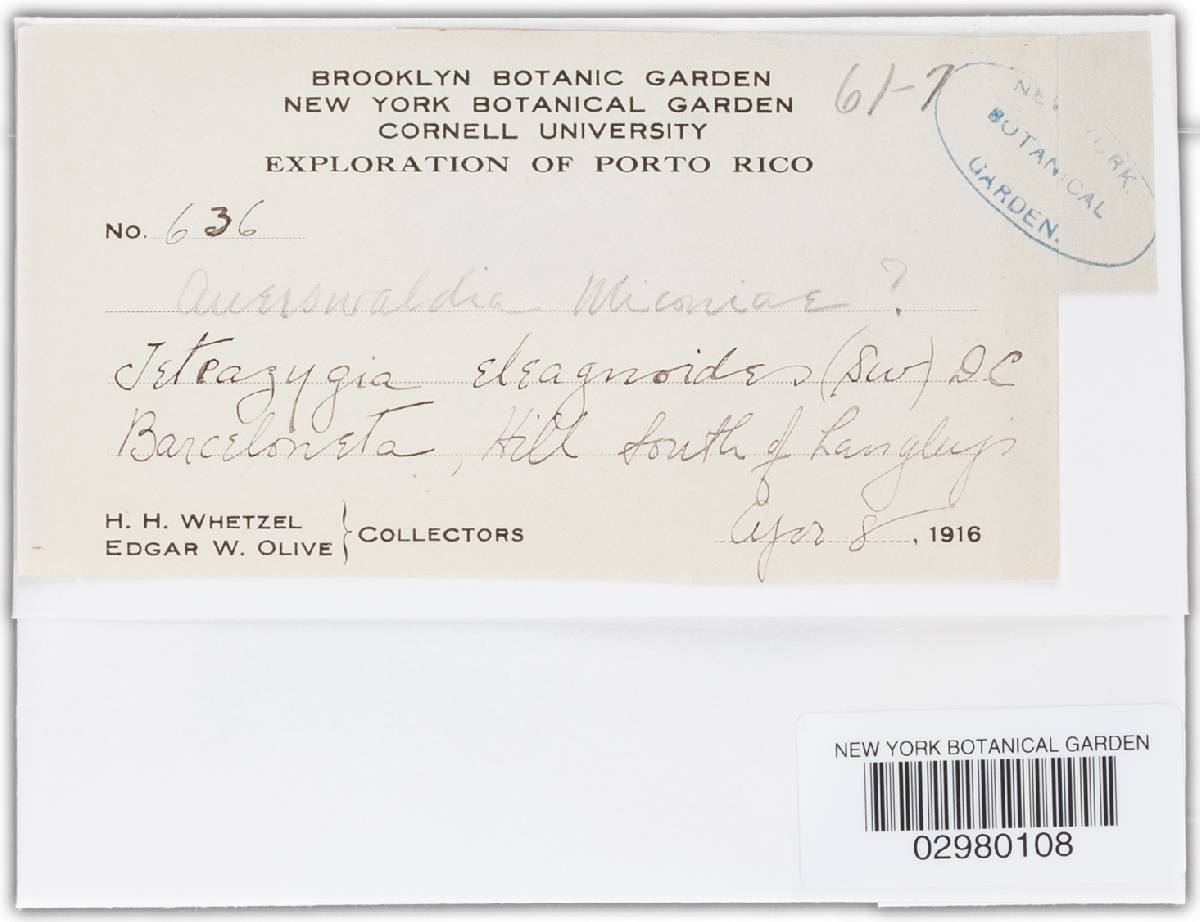 BROOKLYN BOTANIC GARDEN
NEW YORK BOTANICAL GARDEN
CORNELL UNIVERSITY
EXPLORATION OF PORTO RICO
61-7
NEW YORK
BOTANICAL
GARDEN.
No. 636
Auerswaldia Miconiae ?
Tetrazygia eleagnoides (Sw) DC
Barceloneta, Hill South of Langley's
H. H. WHETZEL
EDGAR W. OLIVE
COLLECTORS
Apr 8, 1916
NEW YORK BOTANICAL GARDEN
02980108